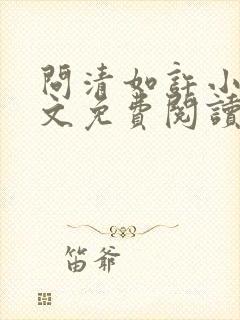 問清如許小
文免費閱讀
笛爺